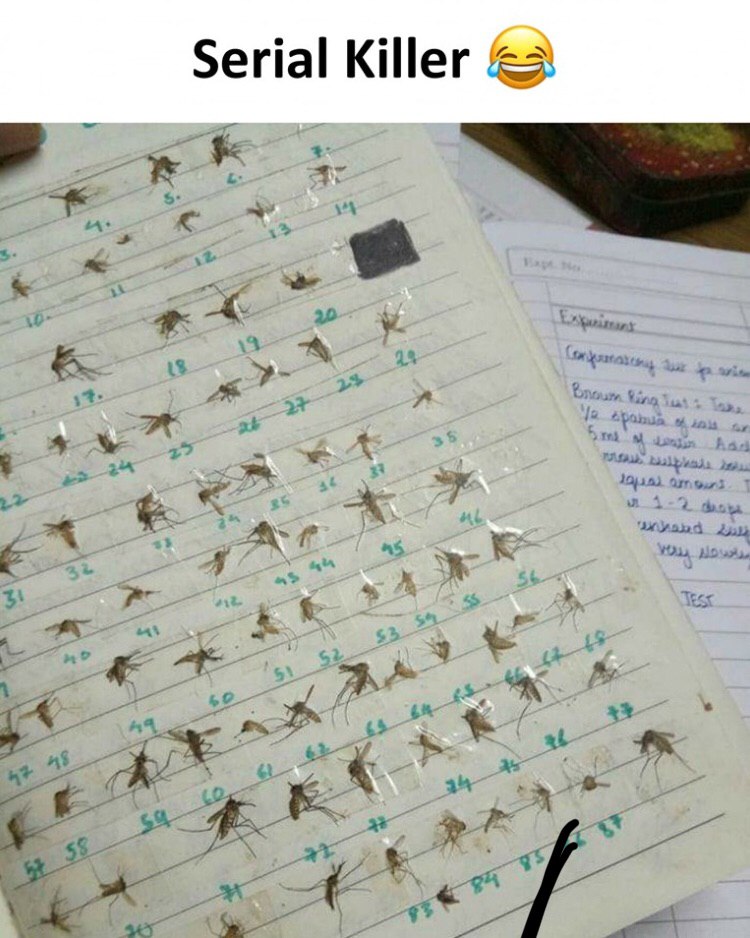 Serial Killer 😂
3. 4. 5. 6. 7.
10. 11 12 13 14
17. 18 19 20
22 23 24 25 26 27 28 29
31 32 33 34 35 36 37 38
40 41 42 43 44 45 46
47 48 49 50 51 52 53 54 55 56
57 58 59 60 61 62 63 64 65 66 67 68
70 71 72 73 74 75 76 77
83 84 85 87
Expt. No.
Experiment
Confirmatory test for anion
Brown Ring Test : Take
1/2 spatula of salt an
5 ml of water. Add
rrous sulphate
equal amount. T
1-2 drops
very slowly
TEST